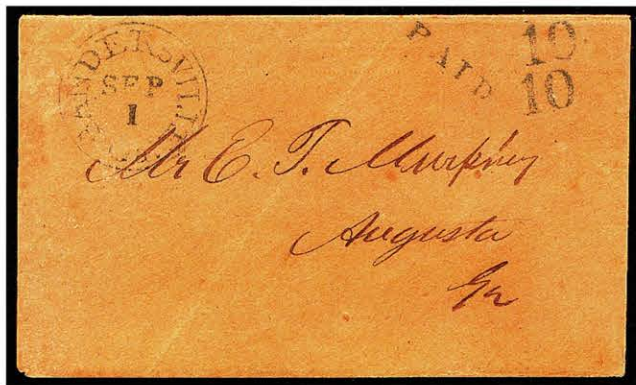 SANDERSVILLE
SEP
1
PAID
10
10
Mr E. T. Murphey
Augusta
Ga